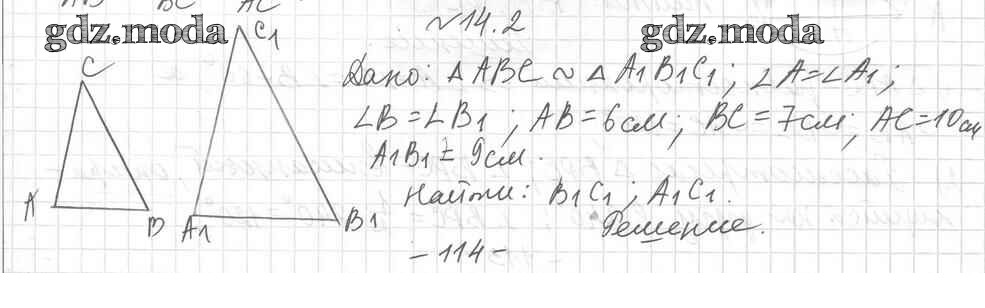 AB BC AC
gdz.moda
gdz.moda
№14.2
Дано: △ABC ~ △A1B1C1; ∠A=∠A1;
∠B=∠B1; AB=6см; BC=7см; AC=10см
A1B1=9см.
Найти: B1C1; A1C1.
Решение.
C
A
B
C1
A1
B1
-114-